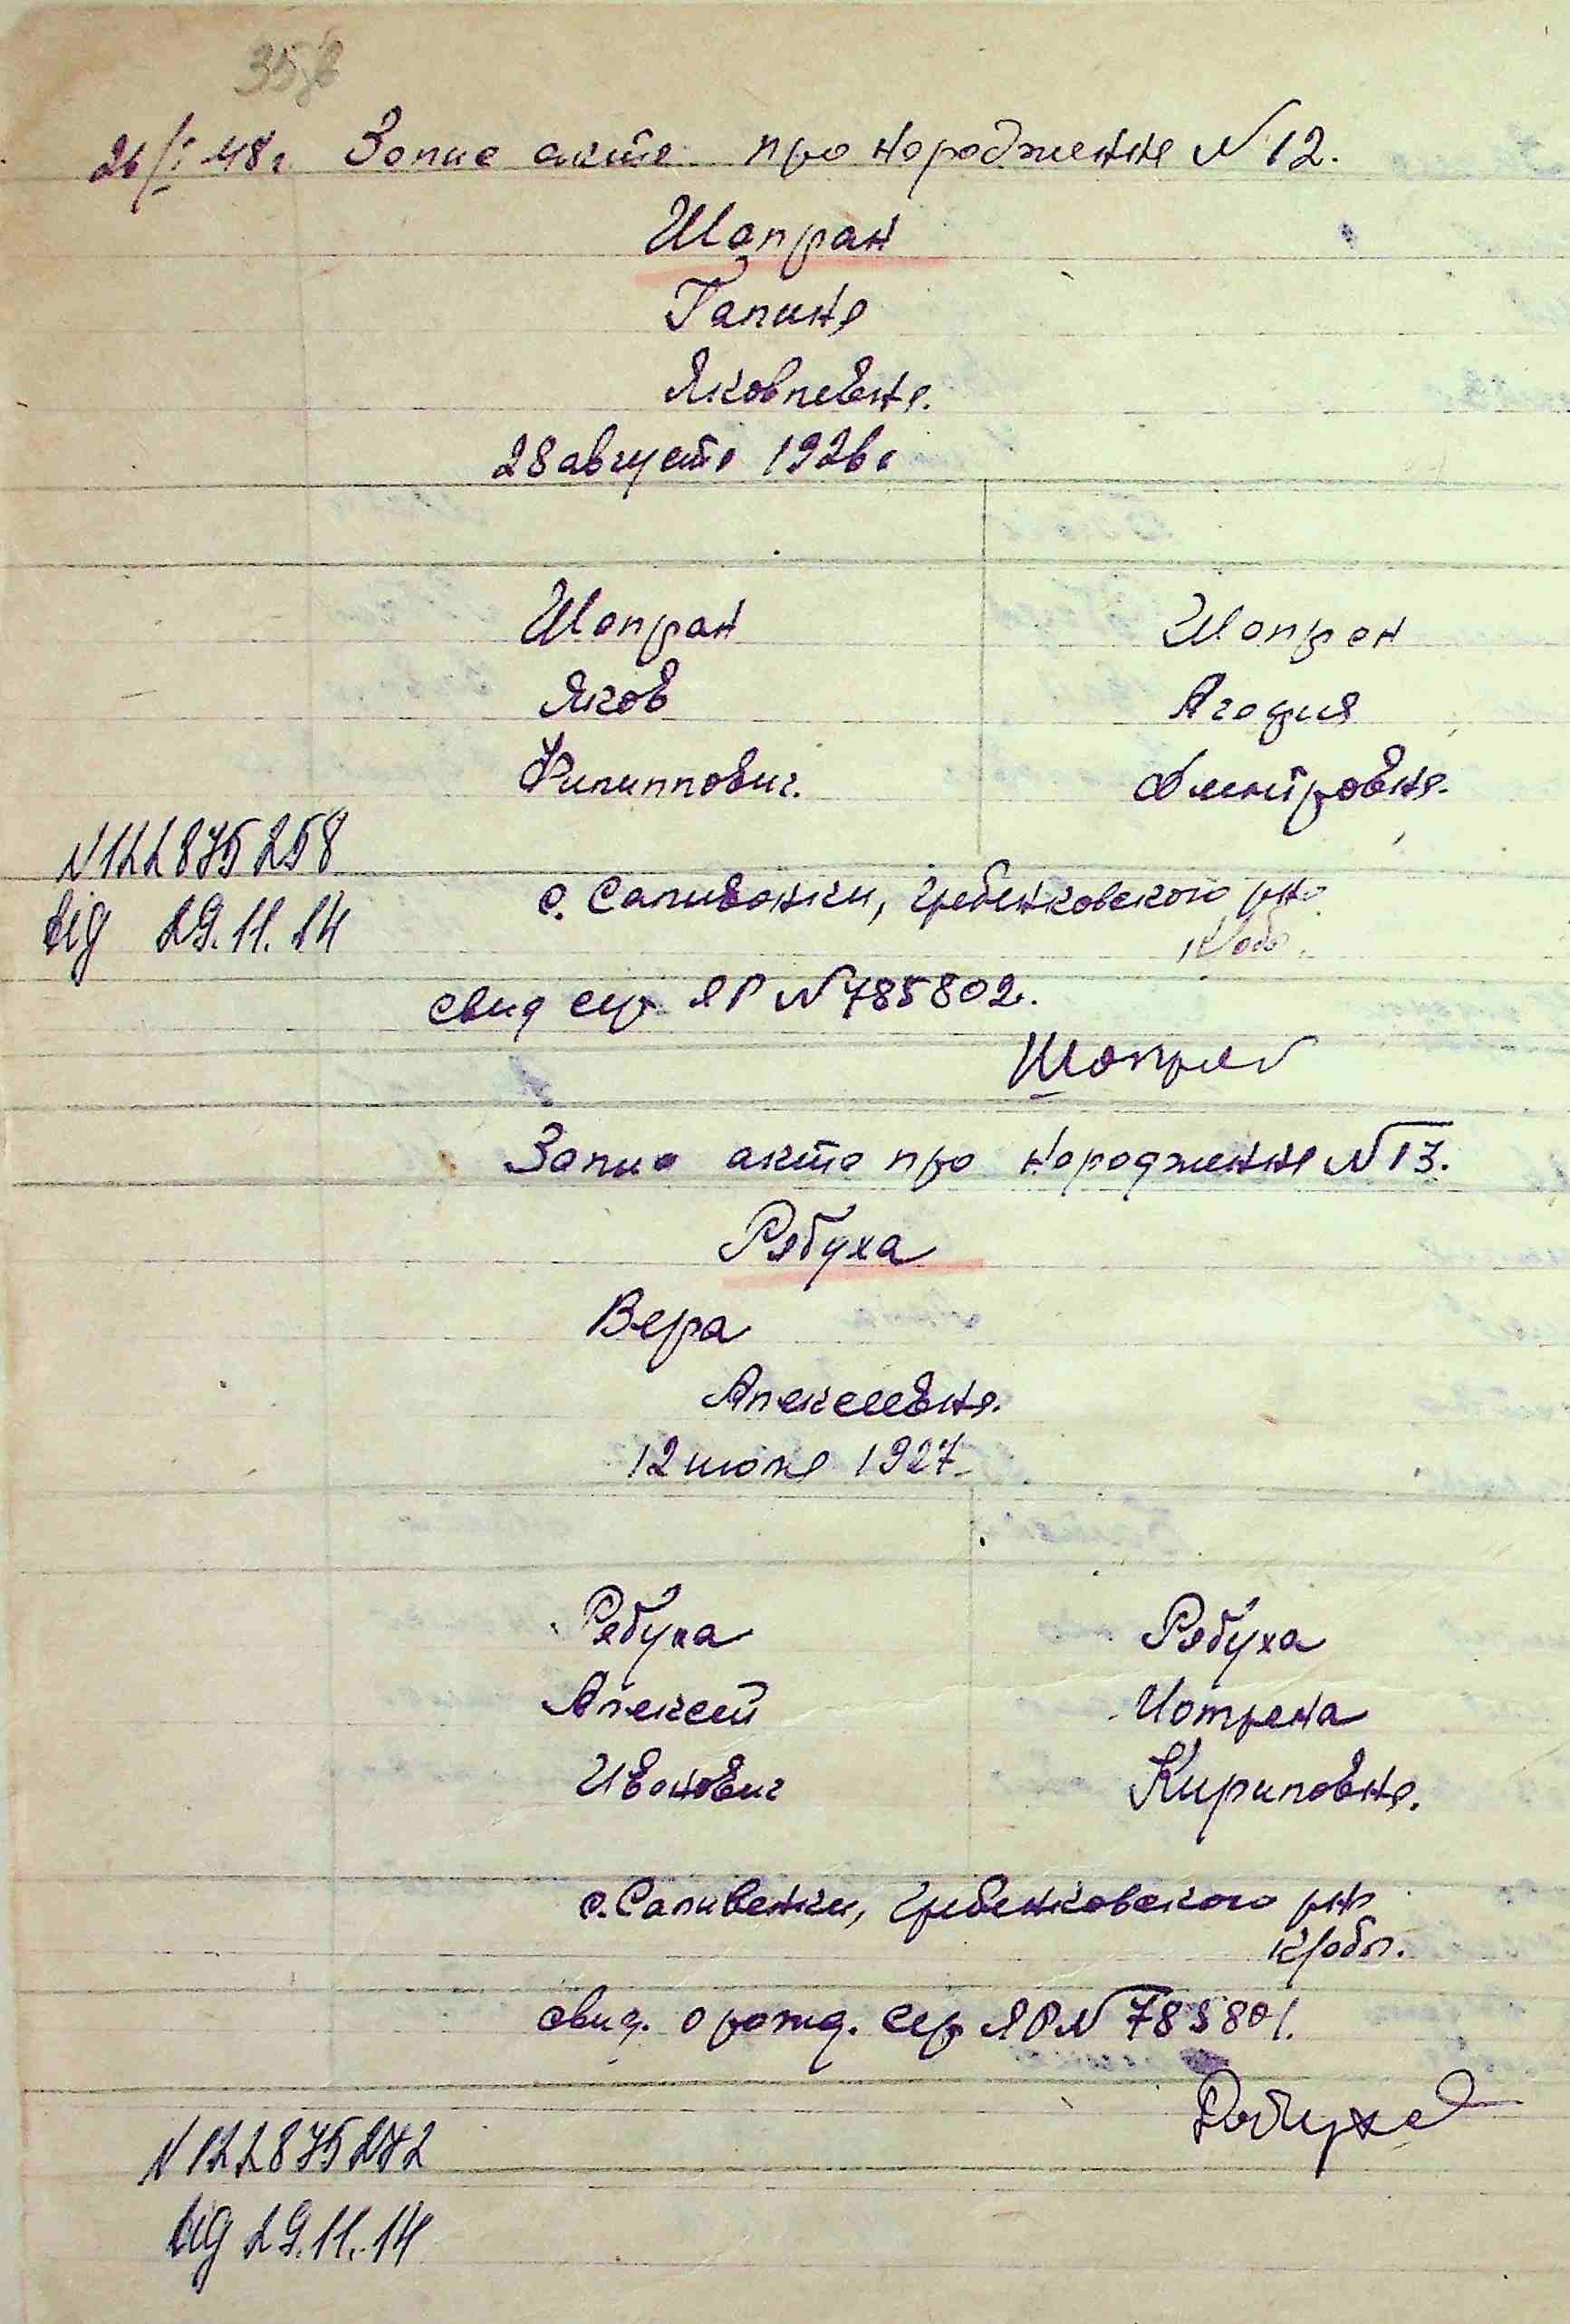 26/I 48г. Запис акта про народження N 12.
Шапран
Галина
Яковлевна.
28 августа 1926г
Шапран
Яков
Филиппович.
Шапран
Агафия
Дмитровна.
N122875258
від 29.11.14
с. Саливонки, Гребенковского рна
К/обл.
свид сер. ЯР N785802.
Шапран
Запис акта про народження N 13.
Рябуха
Вера
Алексеевна.
12 июля 1927
Рябуха
Алексей
Иванович
Рябуха
Мотрена
Кириловна.
с. Саливонки, Гребенковского рна
К/обл.
свид. о рожд. сер ЯР N 785801.
Рябуха
N122875272
від 29.11.14